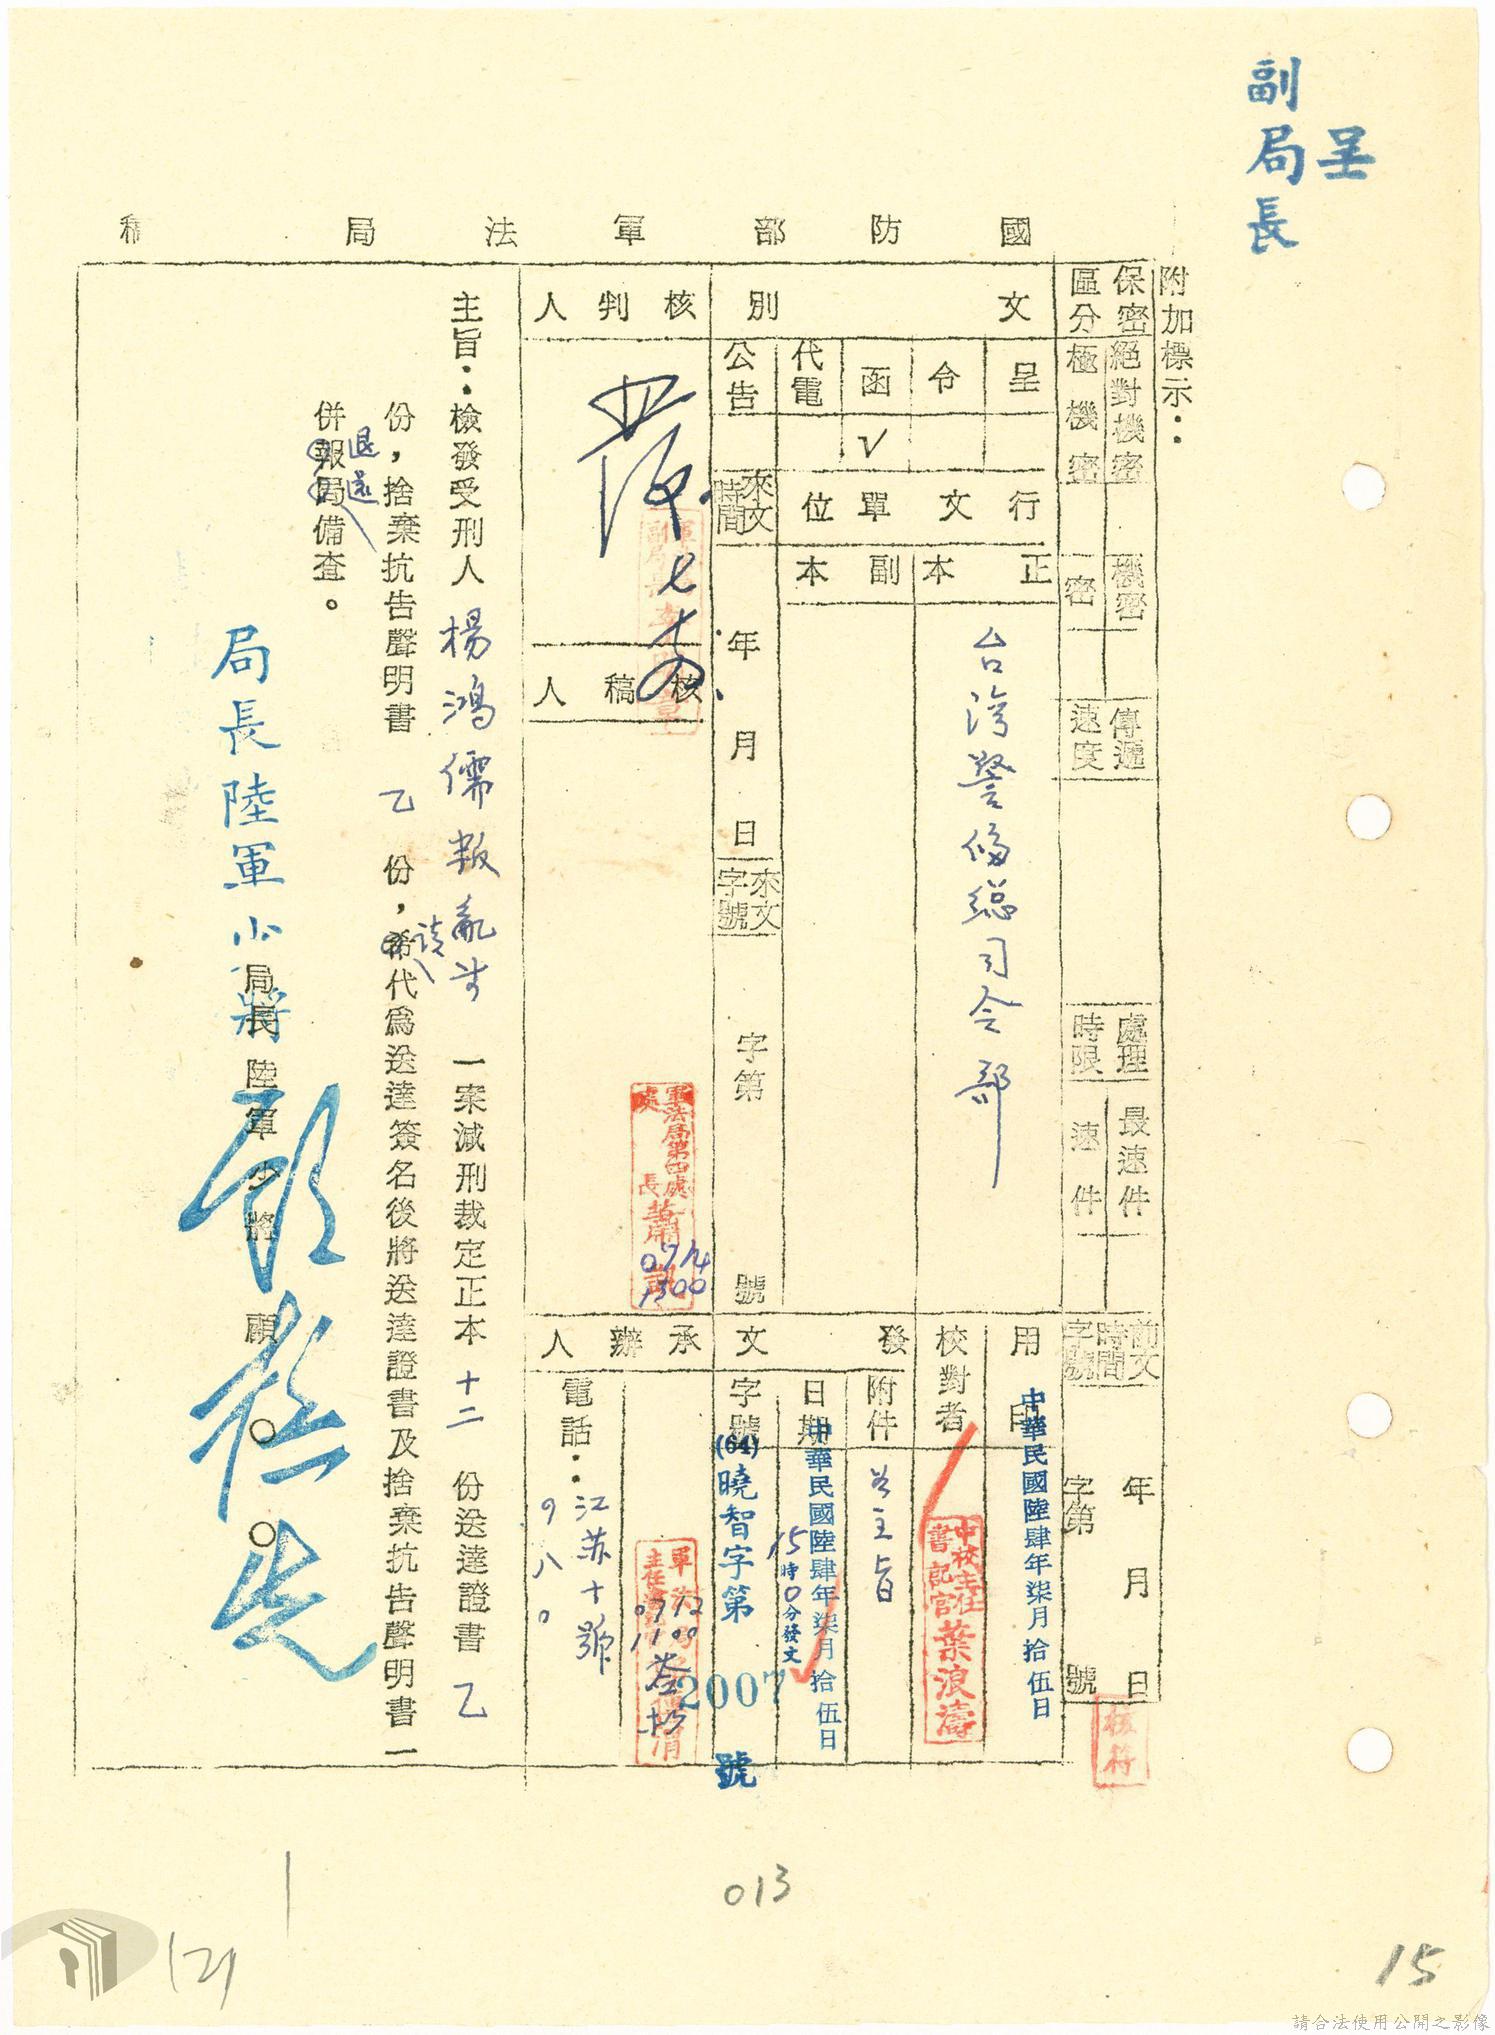 呈
副局長
國防部軍法局稿
附加標示：
保密區分
絕對機密
極機密
機密
密
傳遞速度
處理時限
最速件
速件
前文時間字號
年月日
字第號
文別
呈
令
函
✓
代電
公告
行文單位
正本
副本
台灣警備總司令部
來文時間
年月日
來文字號
字第號
用印
中華民國陸肆年柒月拾伍日
校對者
中校主任書記官葉浪濤
發文
附件
如主旨
日期
中華民國陸肆年柒月拾伍日
15時0分發文
字號
(64)曉智字第2007號
核判人
核稿人
軍法局第四處處長蕭
07/14
1500
承辦人
07/12
1100
電話：江苏十號
九八〇
主旨：檢發受刑人楊鴻儒叛亂等一案減刑裁定正本十二份送達證書乙
份，捨棄抗告聲明書乙份，希請代為送達簽名後將送達證書及捨棄抗告聲明書一
併報局退還備查。
局長陸軍少將
局長陸軍少將顧○○
013
121
15
請合法使用公開之影像